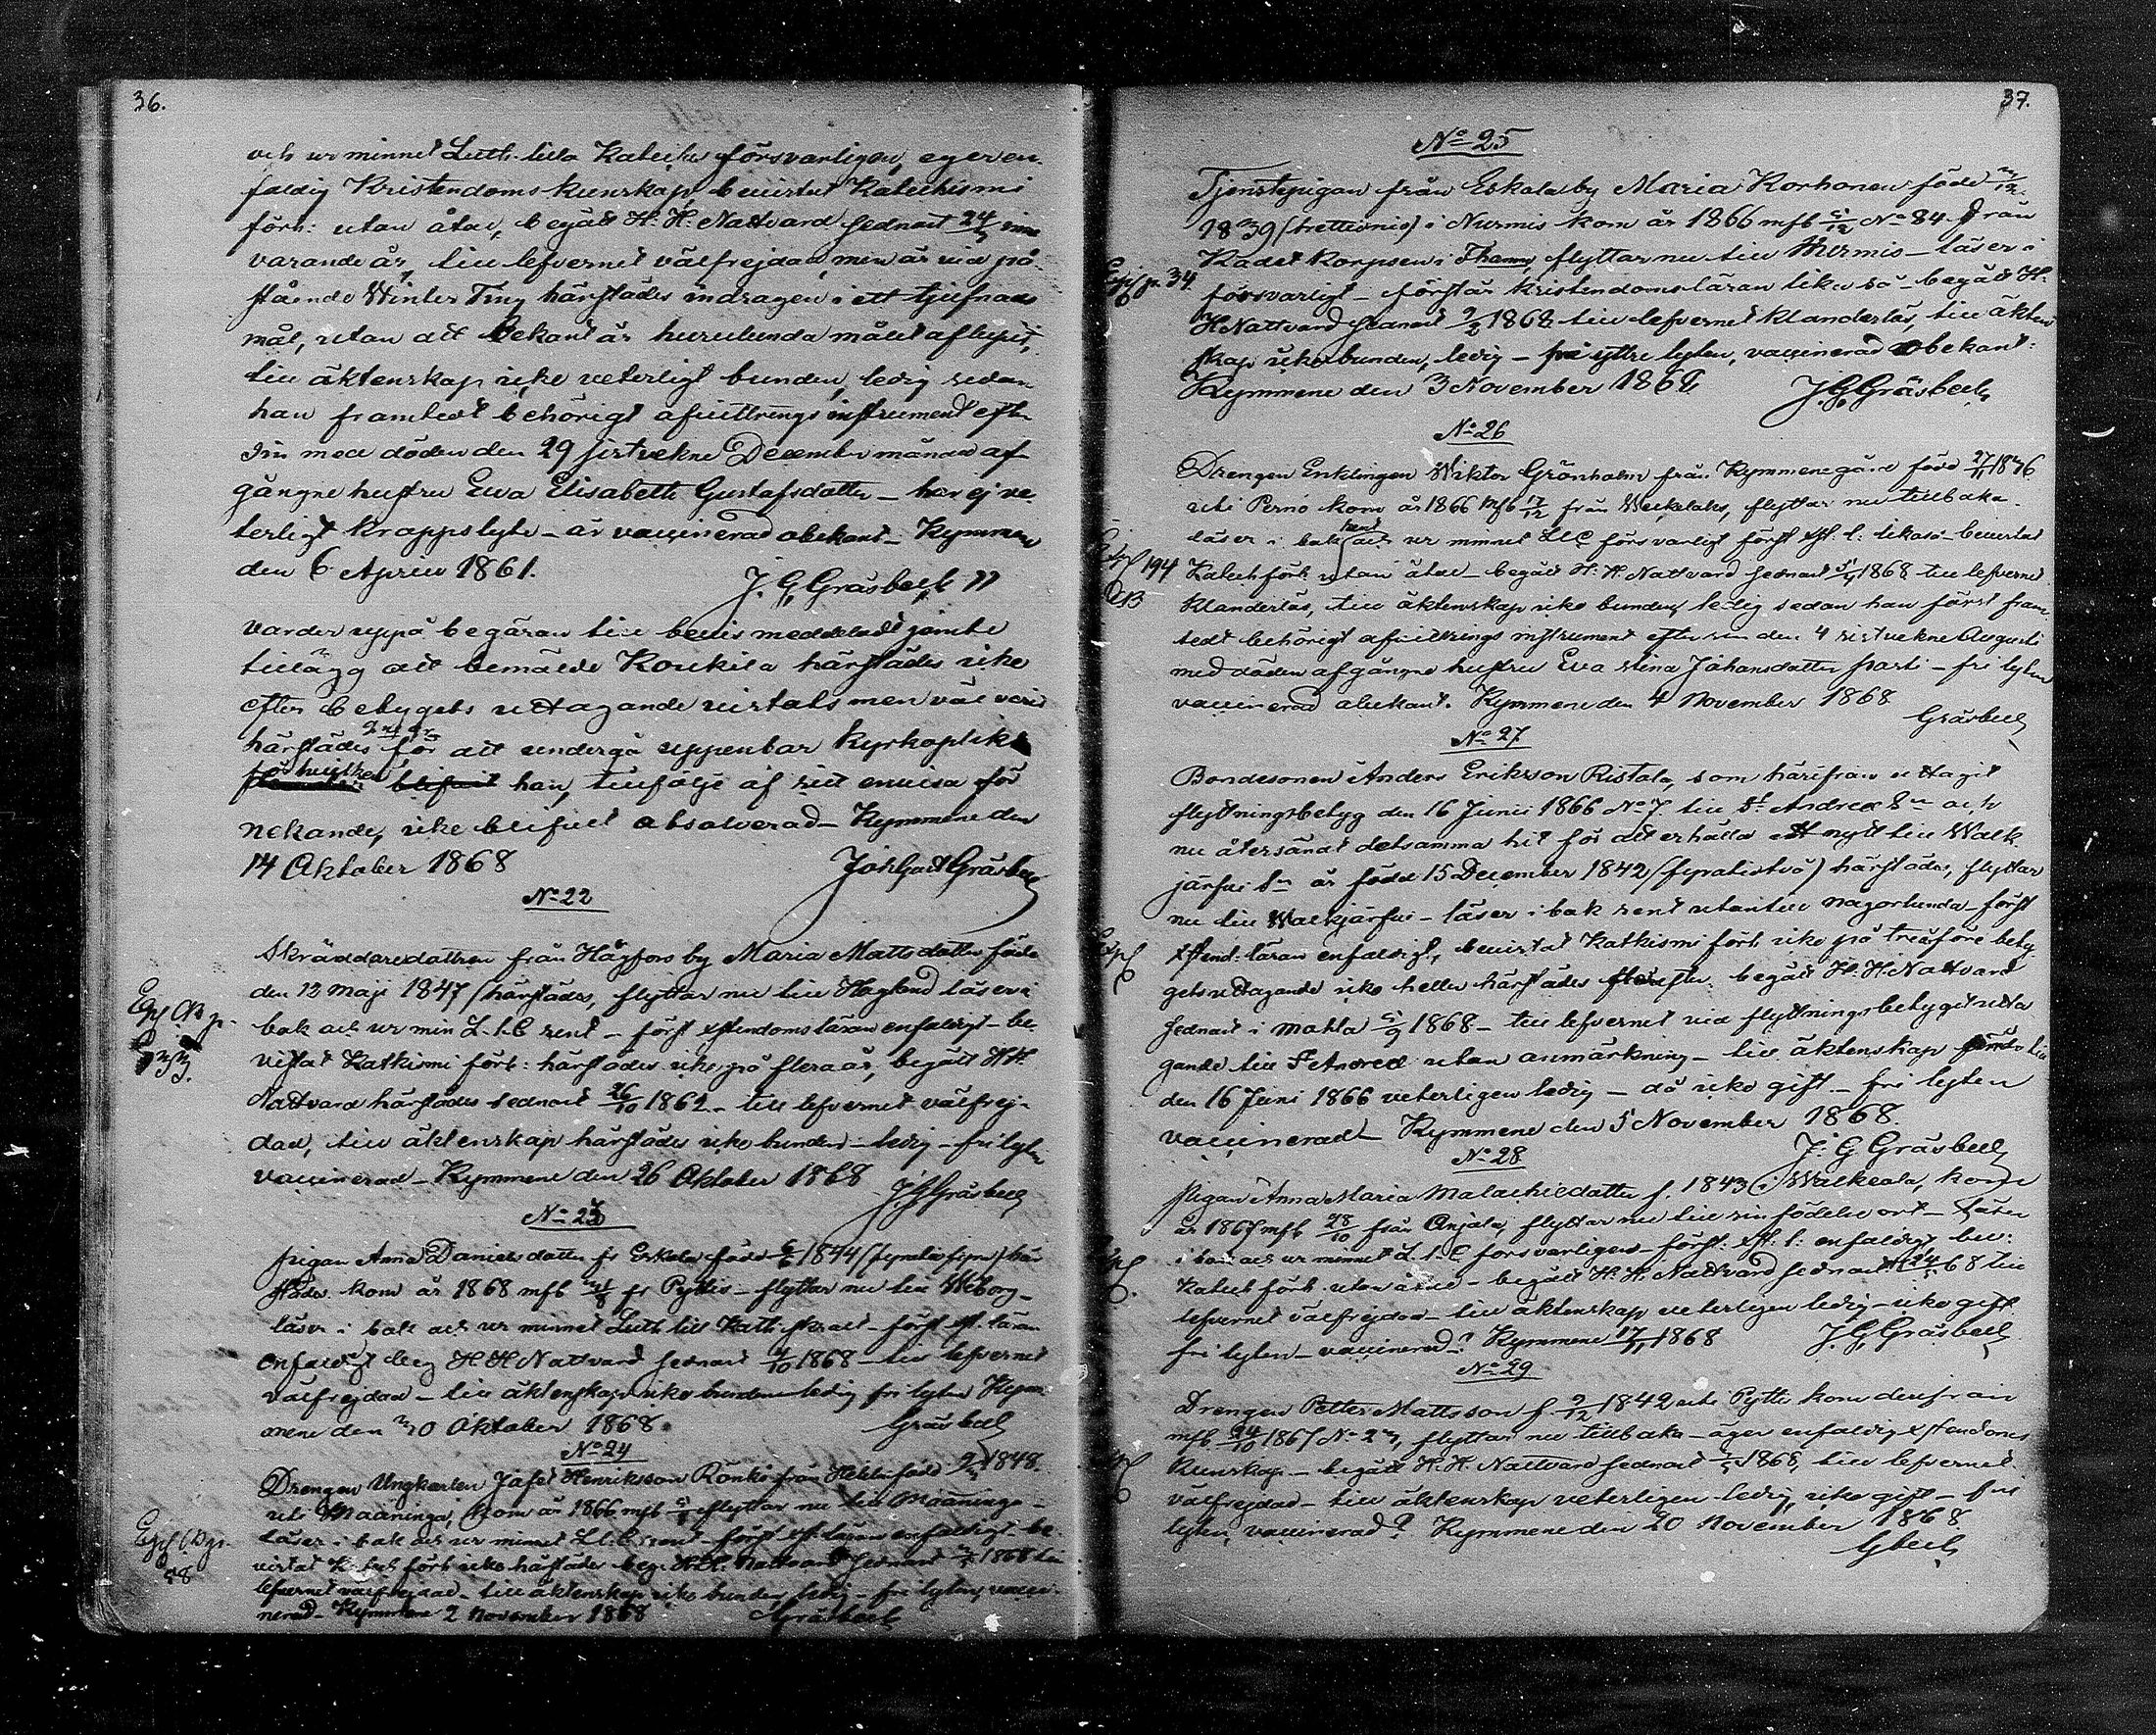 36.
och ur minnet Luth. lilla Kateches försvarligen, eger en-
faldig Kristendoms kunskap, bevistat Katechismi
förh: utan åtal, begått H. H. Nattvard sednast 24/3 inne
varande år, till lefvernet välfrejdad, men är vid på
stående Winter Ting härstädes indragen i ett tjufnads
mål, utan att bekant är hurulunda målet aflupit,
till äktenskap icke veterligt bunden, ledig sedan
han framtedt behörigt afvittrings instrument efter
sin med döden den 29 sistvekne December månad af-
gångne hustru Ewa Elisabeth Gustafsdotter – har ej ve
terligt kroppslyte – är vaccinerad obekant – Kymmene
den 6 April 1861.
J. G. Gräsbeck "
varder uppå begäran till bevis meddeladt jämte
tillägg att bemälde Koukila härstädes icke
efter betygets uttagande vistats men väl varit
härstädes för att undergå uppenbar Kyrkoplikt
för hvilken han, till följe af sitt envisa för
nekande, icke blifvit absolverad – Kymmene den
14 Oktober 1868
Joh Gust Gräsbeck
No 22
Skräddaredottren från Högfors by Maria Mattsdotter född
den 12 Maji 1847 härstädes, flyttar nu till Hogland läser i
Exp CB p.
133.
bok och ur min L. l. C rent – först xstendoms läran enfaldigt – be-
vistat Katkismi förh: härstädes icke på flera år, begått HH.
Nattvard härstädes sednast 26/10 1862 – till lefvernet välfrej-
dad, till äktenskap härstädes icke bunden – ledig – fri lyten
vaccinerad – Kymmene den 26 Oktober 1868
J G Gräsbeck
No 23
pigan Anna Danielsdotter fr Eskola född 1844 (fyratiofyra) här
städes kom år 1868 mfb fr Pyttis – flyttar nu till Wiborg –
läser i bok och ur minnet Luth lill Kath – först xst. läran
enfaldigt beg H H Nattvard sednast /10 1868 – till lefvernet
välfrejdad – till äktenskap icke bunden ledig fri lyten Kym
mene den 30 Oktober 1868.
Gräsbeck
No 24
Drengen Ungkarlen Jafet Henriksson Rönkö från född 1848.
uti Maaninga, kom år 1866 mfb flyttar nu till Maaninga –
Exp CB p.
58
läser i bok och ur minnet Ll. C rent – först xst. läran enfaldigt – be
vistat Katech förh icke härstädes beg. H.H. Nattvard sednast 1868 till
lefvernet välfrejdad – till äktenskap icke bunden, ledig – fri lyten, vacci-
nerad – Kymmene 2 November 1868
Gräsbeck
37.
No 25
Tjenstepigan från Eskola by Maria Korhonen född /12
1839 (trettionio) i Nurmis kom år 1866 mfb /12 No 84 från
Kadet Korpsen i Fhamn, flyttar nu till Nurmis – läser i
Exp p. 34
försvarligt – förstår Kristendomsläran lika så – begått H.
H. Nattvard sednast 1868 till lefvernet klanderlös, till äkten
skap icke bunden, ledig – fri yttre lyten, vaccinerad obekant:
Kymmene den 3 November 1868
J. G. Gräsbeck
No 26
Drengen Enklingen Wiktor Grönholm från Kymmenegård född 27/11 1836
uti Perno kom år 1866 mfb 17/12 från Weckelaks, flyttar nu tillbaka –
läser i bok rent och ur minnet LlC försvarligt först xst. l: likaså – bevistat
Exp 194
CB
Katech förh utan åtal – begått H. H. Nattvard sednast 1868 till lefvernet
klanderlös, till äktenskap icke bunden, ledig sedan han först fram
tedt behörigt afvittrings instrument efter sin den 4 sistvekne Augusti
med döden afgångne hustru Eva Stina Johansdotter – fri lyten
vaccinerad obekant. Kymmene den 4 November 1868
Gräsbeck
No 27
Bondesonen Anders Eriksson Ristola, som härifrån uttagit
flyttningsbetyg den 16 Junii 1866 No 7. till St Andreæ Sn och
nu återsändt detsamma hit för att erhålla ett nytt till Walk
järfvi Sn är född 15 December 1842 (fyratiotvå) härstädes, flyttar
nu till Walkjärfvi – läser i bok rent utantill någorlunda – först
Exp
xstend: läran enfaldigt, bevistat Katkismi förh icke på tree före bety
gets uttagande icke heller härstädes efter. begått H. H. Nattvard
sednast i Mohla 1868 – till lefvernet vid flyttningsbetygets utta
gande till St Andreæ utan anmärkning – till äktenskap till
den 16 Juni 1866 veterligen ledig – då icke gift – fri lyten
vaccinerad – Kymmene den 5 November 1868.
J. G. Gräsbeck
No 28
pigan Anna Maria Malachiedotter f. 1843 i Walkeala, kom
år 1867 mfb 28/10 från Anjala, flyttar nu till sin födelse ort – läser
i bok och ur minnet L. l. C försvarligen – först. xst. l: enfaldigt bev:
Exp
Katech förh. utan åtal – begått H. H. Nattvard sednast 24/ 68 till
lefvernet välfrejdad – till äktenskap veterligen ledig – icke gift
fri lyten – vaccinerad? Kymmene 17/11 1868
J. G. Gräsbeck
No 29
Drengen Petter Mattsson f. 9/12 1842 uti Pyttis kom derifrån
mfb 24/10 1867 No 23, flyttar nu tillbaka – äger enfaldig xstendoms
Exp
kunskap – begått H. H. Nattvard sednast 1868, till lefvernet
välfrejdad – till äktenskap veterligen ledig, icke gift – fri
lyten, vaccinerad? Kymmene den 20 November 1868
Gbeck